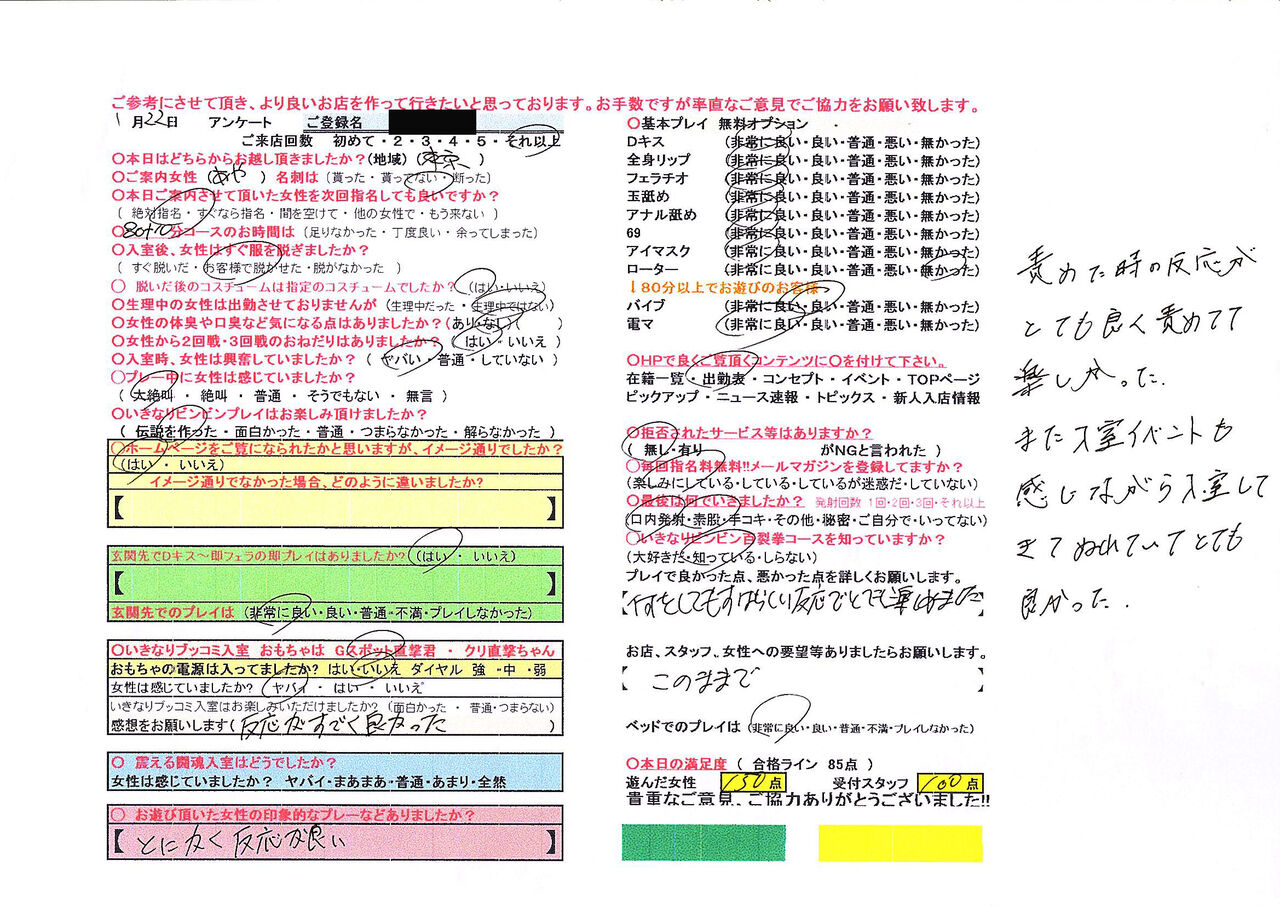 ご参考にさせて頂き、より良いお店を作って行きたいと思っております。お手数ですが率直なご意見でご協力をお願い致します。
1月22日 アンケート ご登録名
ご来店回数 初めて・2・3・4・5・それ以上
〇本日はどちらからお越し頂きましたか?(地域)(東京)
〇ご案内女性(あや)名刺は(貰った・貰ってない・断った)
〇本日ご案内させて頂いた女性を次回指名しても良いですか?
(絶対指名・すぐなら指名・間を空けて・他の女性で・もう来ない)
〇80+10分コースのお時間は(足りなかった・丁度良い・余ってしまった)
〇入室後、女性はすぐ服を脱ぎましたか?
(すぐ脱いだ・お客様で脱がせた・脱がなかった)
〇脱いだ後のコスチュームは指定のコスチュームでしたか?(はい・いいえ)
〇生理中の女性は出勤させておりませんが(生理中だった・生理中ではない)
〇女性の体臭や口臭など気になる点はありましたか?(あり・なし)( )
〇女性から2回戦・3回戦のおねだりはありましたか?(はい・いいえ)
〇入室時、女性は興奮していましたか?(ヤバい・普通・していない)
〇プレー中に女性は感じていましたか?
(大絶叫・絶叫・普通・そうでもない・無言)
〇いきなりビンビンプレイはお楽しみ頂けましたか?
(伝説を作った・面白かった・普通・つまらなかった・解らなかった)
〇ホームページをご覧になられたかと思いますが、イメージ通りでしたか?
(はい・いいえ)
イメージ通りでなかった場合、どのように違いましたか?
【 】
玄関先でDキス～即フェラの即プレイはありましたか?(はい・いいえ)
【 】
玄関先でのプレイは(非常に良い・良い・普通・不満・プレイしなかった)
〇いきなりブッコミ入室 おもちゃは Gスポット直撃君・クリ直撃ちゃん
おもちゃの電源は入ってましたか? はい・いいえ ダイヤル 強・中・弱
女性は感じていましたか? ヤバイ・はい・いいえ
いきなりブッコミ入室はお楽しみいただけましたか?(面白かった・普通・つまらない)
感想をお願いします(反応がすごく良かった)
〇震える闘魂入室はどうでしたか?
女性は感じていましたか? ヤバイ・まあまあ・普通・あまり・全然
〇お遊び頂いた女性の印象的なプレーなどありましたか?
【とにかく反応が良い】
〇基本プレイ 無料オプション
Dキス (非常に良い・良い・普通・悪い・無かった)
全身リップ (非常に良い・良い・普通・悪い・無かった)
フェラチオ (非常に良い・良い・普通・悪い・無かった)
玉舐め (非常に良い・良い・普通・悪い・無かった)
アナル舐め (非常に良い・良い・普通・悪い・無かった)
69 (非常に良い・良い・普通・悪い・無かった)
アイマスク (非常に良い・良い・普通・悪い・無かった)
ローター (非常に良い・良い・普通・悪い・無かった)
↓80分以上でお遊びのお客様
バイブ (非常に良い・良い・普通・悪い・無かった)
電マ (非常に良い・良い・普通・悪い・無かった)
〇HPで良くご覧頂くコンテンツに〇を付けて下さい。
在籍一覧・出勤表・コンセプト・イベント・TOPページ
ピックアップ・ニュース速報・トピックス・新人入店情報
〇拒否されたサービス等はありますか?
(無し・有り がNGと言われた)
〇毎回指名料無料!!メールマガジンを登録してますか?
(楽しみにしている・している・しているが迷惑だ・していない)
〇最後は何でいきましたか? 発射回数 1回・2回・3回・それ以上
(口内発射・素股・手コキ・その他・秘密・ご自分で・いってない)
〇いきなりビンビン百裂拳コースを知っていますか?
(大好きだ・知っている・しらない)
プレイで良かった点、悪かった点を詳しくお願いします。
【何をしてもすばらしい反応でとても楽しめました】
お店、スタッフ、女性への要望等ありましたらお願いします。
【このままで】
ベッドでのプレイは(非常に良い・良い・普通・不満・プレイしなかった)
〇本日の満足度(合格ライン 85点)
遊んだ女性 150点 受付スタッフ 100点
貴重なご意見、ご協力ありがとうございました!!
責めた時の反応が
とても良く責めてて
楽しかった.
また入室イベントも
感じながら入室して
きてぬれていてとても
良かった.